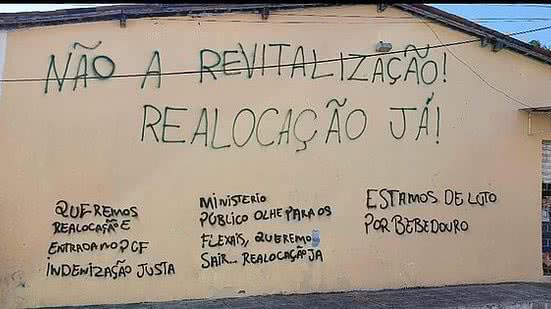 NÃO A REVITALIZAÇÃO!
REALOCAÇÃO JÁ!
QUEREMOS
REALOCASÃO E
ENTRADA NO PCF
INDENIZAÇÃO JUSTA
MINISTERIO
PÚBLICO OLHE PARA OS
FLEXAIS, QUEREMO
SAIR... REALOCAÇÃO JA
ESTAMOS DE LUTO
POR BEBEDOURO